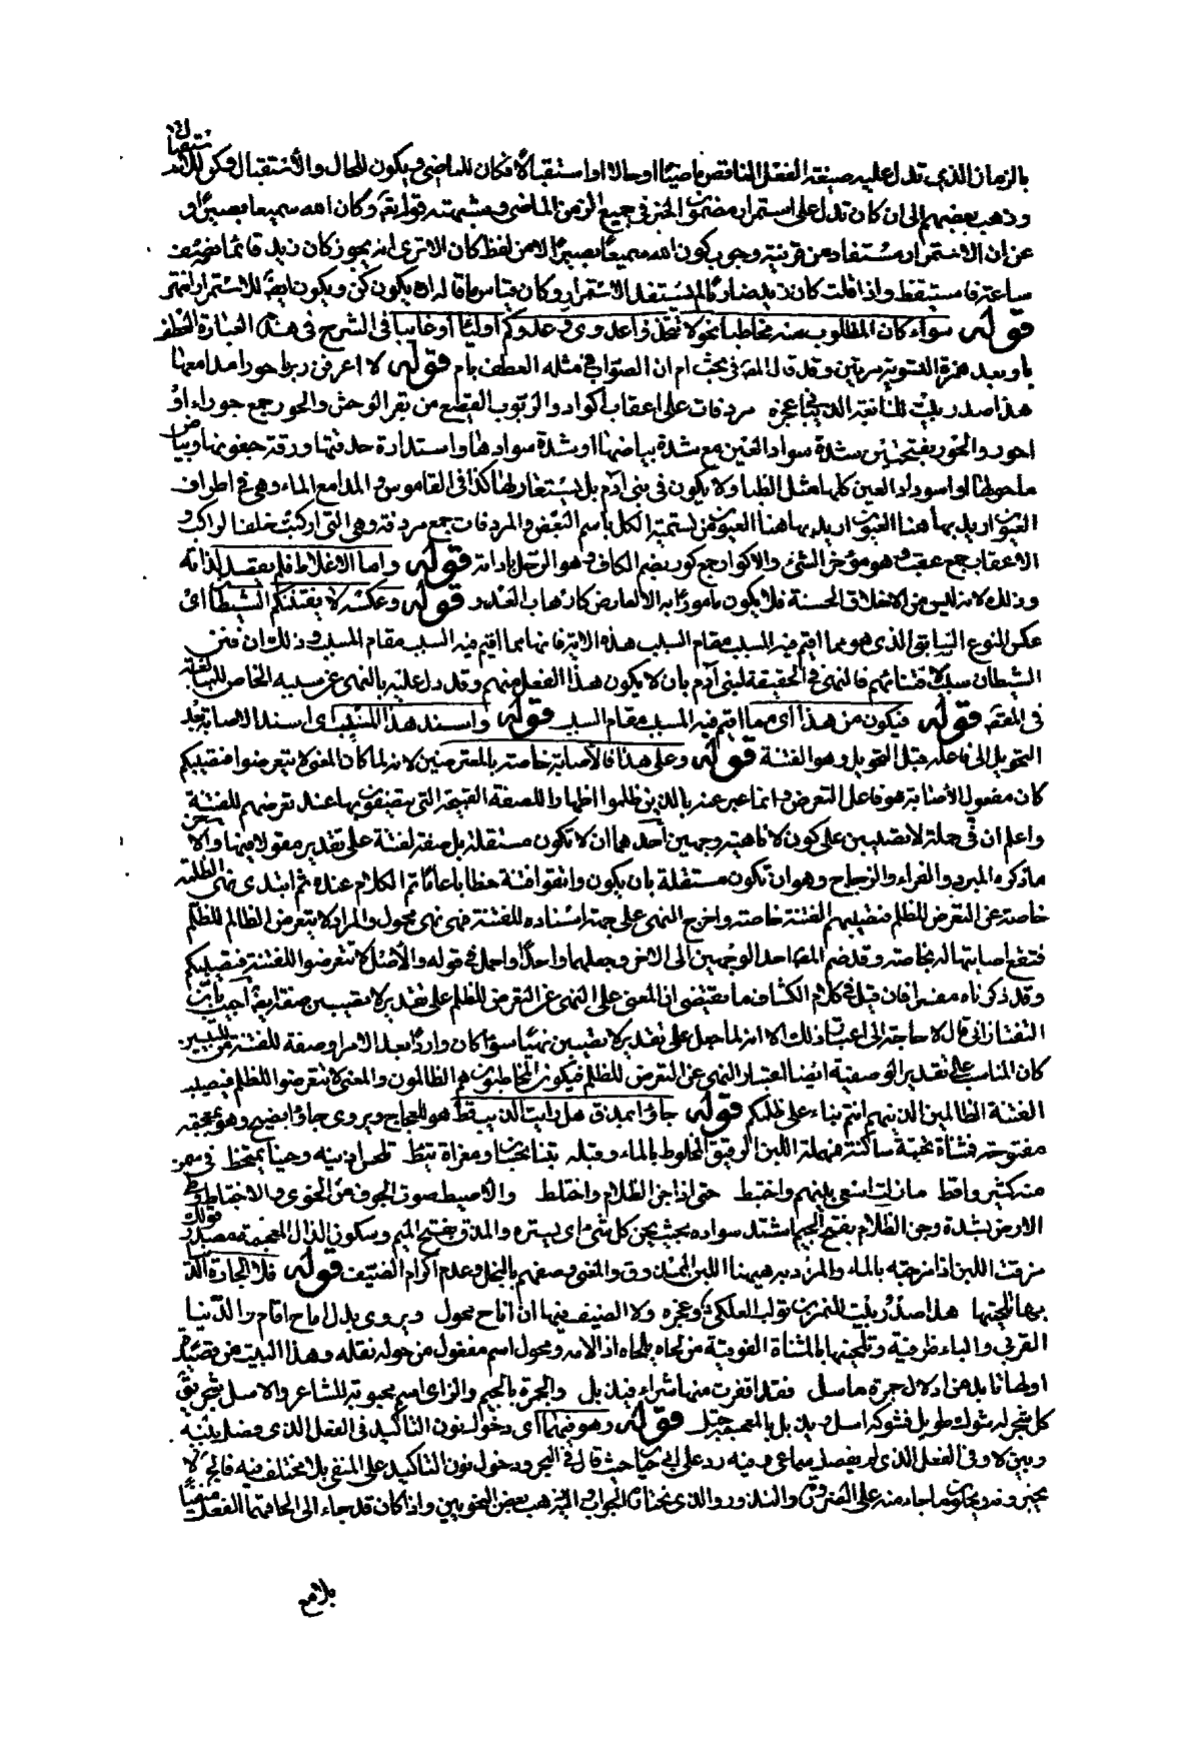 بالزمان الذي تدل عليه صيغة الفعل الناقص ماضيا او حالا او استقبالا فكان للماضي ويكون للحال والاستقبال وكن للاستقبال
وذهب بعضهم الى ان كان تدل على استمرار مضمون الخبر في جميع الزمن الماضي وشبهته قوله تع وكان الله سميعا بصيرا و
عن ان الاستمرار مستفاد من قرينة وجوب كون الله سميعا بصيرا لا من لفظ كان الا ترى انه يجوز كان زيد قائما نصف
ساعة فاستيقظ واذا قلت كان زيد ضاربا لم يستفد الاستمرار وكان قياس ما قاله ان يكون كن ويكون ايضا للاستمرار انتهى
قوله سواء كان المطلوب منه مخاطبا نحو لا تتخذوا عدوي وعدوكم اولياء او غائبا في الشرح في هذه العبارة العطف
باو بعد همزة التسوية مرتين وقد قال المصـ في بحث ام ان الصواب في مثله العطف بام قوله لا اعرفن ربربا حورا مدامعها
هذا صدر بيت للنابغة الذبياني عجزه مردفات على اعقاب اكوار والربرب القطيع من بقر الوحش والحور جمع حوراء او
احور والحور بفتحتين شدة سواد العين مع شدة بياضها او شدة سوادها واستدارة حدقتها ورقة جفونها وبياض
ما حولها او اسوداد العين كلها مثل الظباء ولا يكون في بني آدم بل يستعار لها كذا في القاموس والمدامع الماء وهي في اطراف
العيون اريد بها هنا العيون اريد بها هنا العيون من تسمية الكل باسم البعض والمردفات جمع مردفة وهي التي اركبت خلف الراكب و
الاعقاب جمع عقب وهو مؤخر الشيء والاكوار جمع كور بضم الكاف وهو الرحل باداته قوله واما الاغلاظ فلم يقصد لذاته
وذلك لانه ليس من الاخلاق الحسنة فلا يكون مأمورا به الا لعارض كارهاب العدو قوله وعكسه لا يفتننكم الشيطان اي
عكس النوع السابق الذي هو مما اقيم فيه المسبب مقام السبب هذه الاية فانها مما اقيم فيه السبب مقام المسبب وذلك ان فتن
الشيطان سبب لافتتانهم فالنهي في الحقيقة لبني آدم بان لا يكون هذا الفعل منهم وقد دل عليه بالنهي عن سببه الخاص للمبالغة
في المقصد قوله فيكون من هذا اي مما اقيم فيه المسبب مقام السبب قوله واسند هذا المسبب اي اسند الاصابة بعد
التحويل الى فاعله قبل التحويل وهو الفتنة قوله وعلى هذا فالاصابة خاصة بالمتعرضين لانه لما كان المعنى لا يتعرضوا فتصيبكم
كان مفعول الاصابة هو فاعل التعرض وانما عبر عنه بالذين ظلموا اظهارا للصفة القبيحة التي يتصفون بها عند تعرضهم للفتنة
واعلم ان في جملة لا تصيبن على كون لا ناهية وجهين احدهما ان لا تكون مستقلة بل صفة لفتنة على تقدير مقولا فيها والآخر
ما ذكره المبرد والفراء والزجاج وهو ان تكون مستقلة بان يكون واتقوا فتنة خطابا عاما تم الكلام عنده ثم ابتدئ نهي الظلمة
خاصة عن التعرض للظلم فتصيبهم الفتنة خاصة واخرج النهي على جهة اسناده للفتنة فهي نهي محول والمراد لا يتعرض الظالم للظلم
فتقع اصابتها له خاصة وقد ضم المصـ احد الوجهين الى الاخر وجعلهما واحدا واجمل في قوله والاصل لا تتعرضوا للفتنة فتصيبكم
وقد ذكرناه مفسرا فان قيل في كلام الكشاف ما يقتضي ان المعنى على النهي عن التعرض للظلم على تقدير لا تصيبن صفة ايضا اجيب بان
التفتازاني قال لا حاجة الى اعتبار ذلك الا انه لما حمل على تقدير لا تصيبن نهيا سواء كان واردا بعد الامر او صفة للفتنة من للتبيين
كان المناسب على تقدير الوصفية ايضا اعتبار النهي عن التعرض للظلم فيكون المخاطبون هم الظالمون والمعنى لا تتعرضوا للظلم فتصيب
الفتنة الظالمين الذين هم انتم بناء على ظلمكم قوله جاؤا بمذق هل رايت الذيب قط هو للعجاج ويروى جاؤا بضيح وهو بمعجمة
مفتوحة فمثناة تحتية ساكنة فمهملة اللبن الرقيق المخلوط بالماء وقبله بتنا بحسان ومعزاه تئط تلحس اذنيه وحينا تمتخط في سمن
منه كثير واقط ما زلت اسعى بينهم واختبط حتى اذا جن الظلام واختلط والاطيط صوت الجوف من الخوى والاختباط وطء
الارض بشدة وجن الظلام بفتح الجيم اشتد سواده بحيث يجن كل شيء اي يستره والمذق بفتح الميم وسكون الذال المعجمة مصدر قولك
مزقت اللبن اذا مزجته بالماء والمراد به هيهنا اللبن الممذوق والمعنى وصفهم بالبخل وعدم اكرام الضيف قوله فلا الجارة الدنيا
بها تلحينها هذا صدر بيت للنمر بن تولب العلكي وعجزه ولا الضيف فيها ان اناخ محول ويروى بدل اناخ اقام والدنيا
القربى والباء ظرفية وتلحينها بالمثناة الفوقية من لحاه يلحاه اذا لامه ومحول اسم مفعول من حوله نقله وهذا البيت من قصيدة
اولها تابد من اطلال جمرة ماسل فقد اقفرت منها شراء فيذبل والجمرة بالجيم والزاى اسم محبوبة الشاعر والاسل شجر يق
كل شجر له شوك طويل فشوكه اسل ويذبل بالمعجمة جبل قوله وهو فيهما اي دخول نون التأكيد في الفعل الذي فصل بينه
وبين لا وفي الفعل الذي لم يفصل سماعي وفيه رد على ابي حيان حيث قال في البحر ودخول نون التأكيد على المنفي بلا مختلف فيه فالجمهور لا
يجيزونه ويحملون ما جاء منه على الضرورة والندور والذي نختاره الجواز واليه ذهب بعض النحويين واذا كان قد جاء الى الحاقها الفعل منفيا
بلا مع